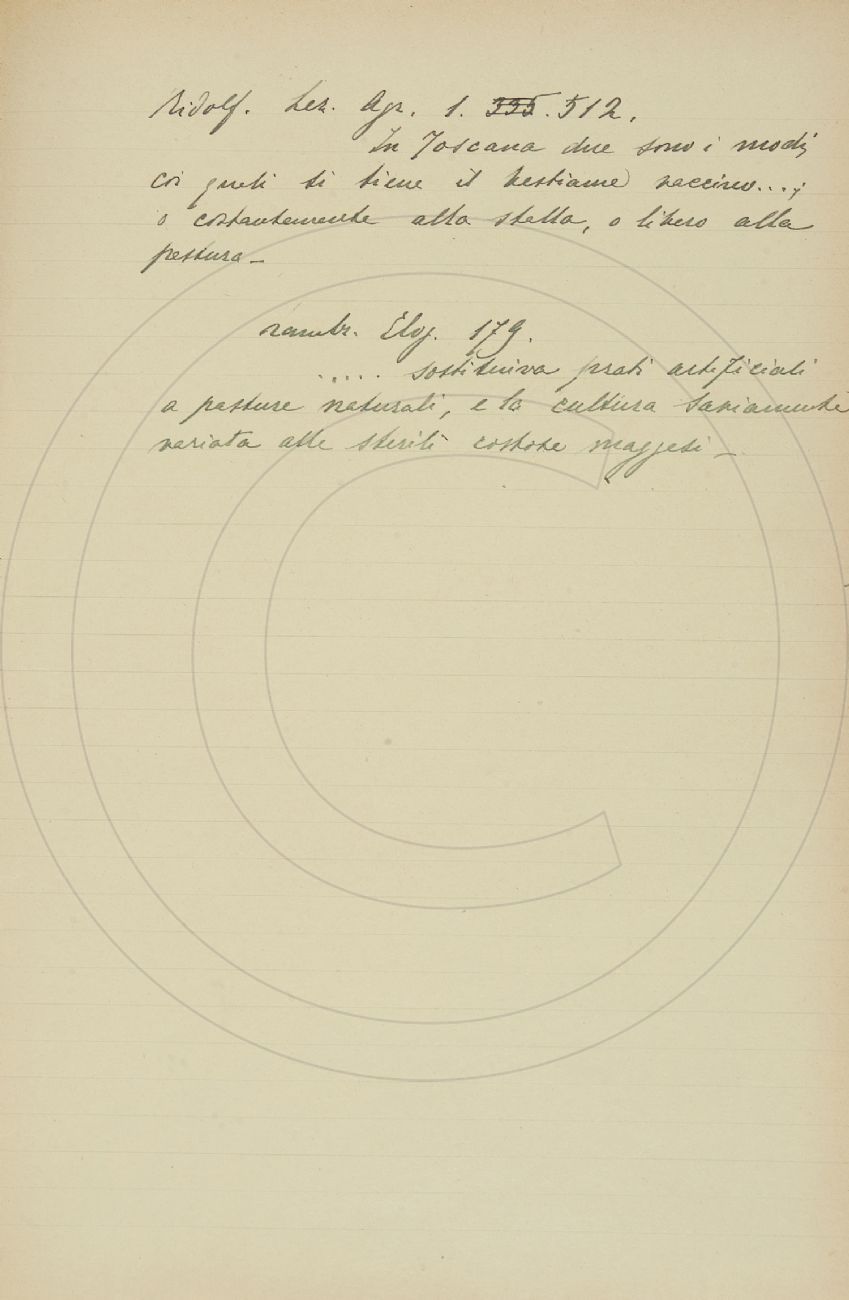 Ridolf. Lez. Agr. 1. 335. 512.
In Toscana due sono i modi,
coi quali si tiene il bestiame vaccino...;
o costantemente alla stalla, o libero alla
pastura_
Lambr. Elog. 179.
..... sostituiva prati artificiali
a pasture naturali, e la cultura saviamente
variata alle sterili costose maggesi_